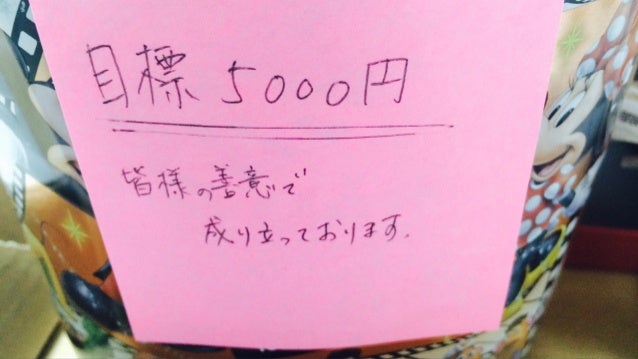 目標 5000円
皆様の善意で
成り立っております.